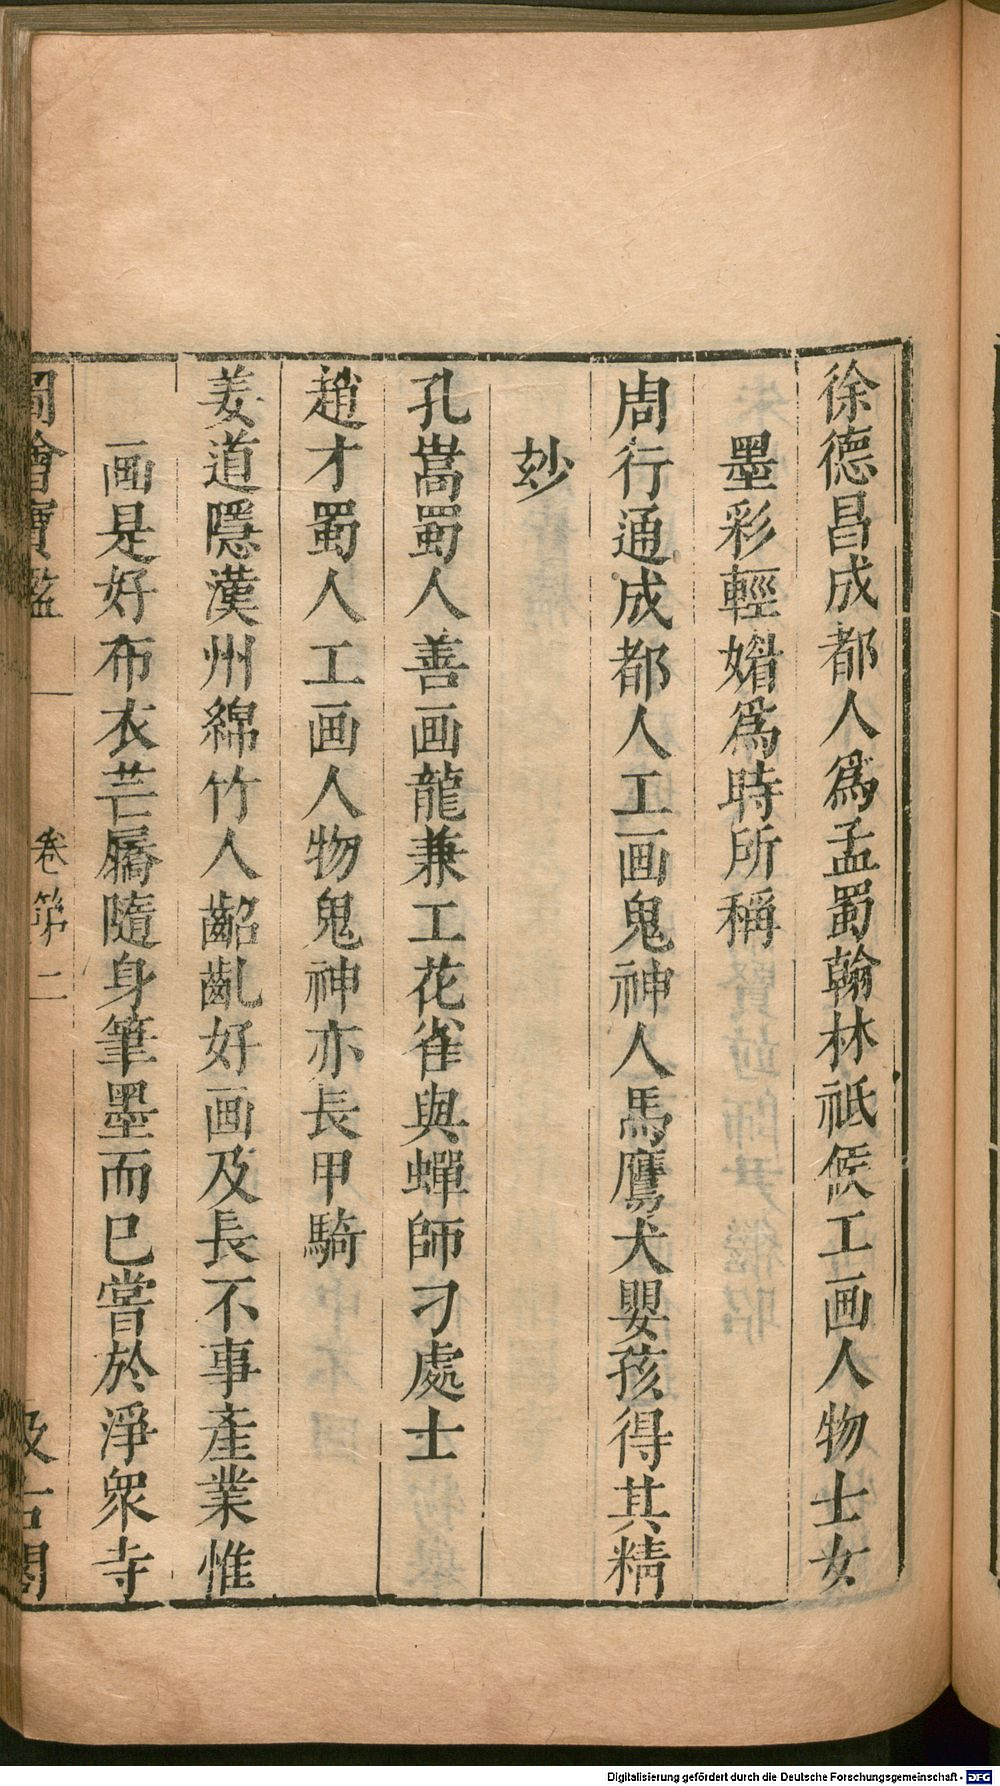 徐德昌成都人爲孟蜀翰林祗候工画人物士女
墨彩輕媚爲時所稱
周行通成都人工画鬼神人馬鷹犬嬰孩得其精
妙
孔嵩蜀人善画龍兼工花雀與蟬師刁處士
趙才蜀人工画人物鬼神亦長甲騎
姜道隱漢州綿竹人齠齔好画及長不事產業惟
画是好布衣芒屩隨身筆墨而已嘗於淨衆寺
圖繪寶鑑 卷第二 汲古閣
Digitalisierung gefördert durch die Deutsche Forschungsgemeinschaft - DFG